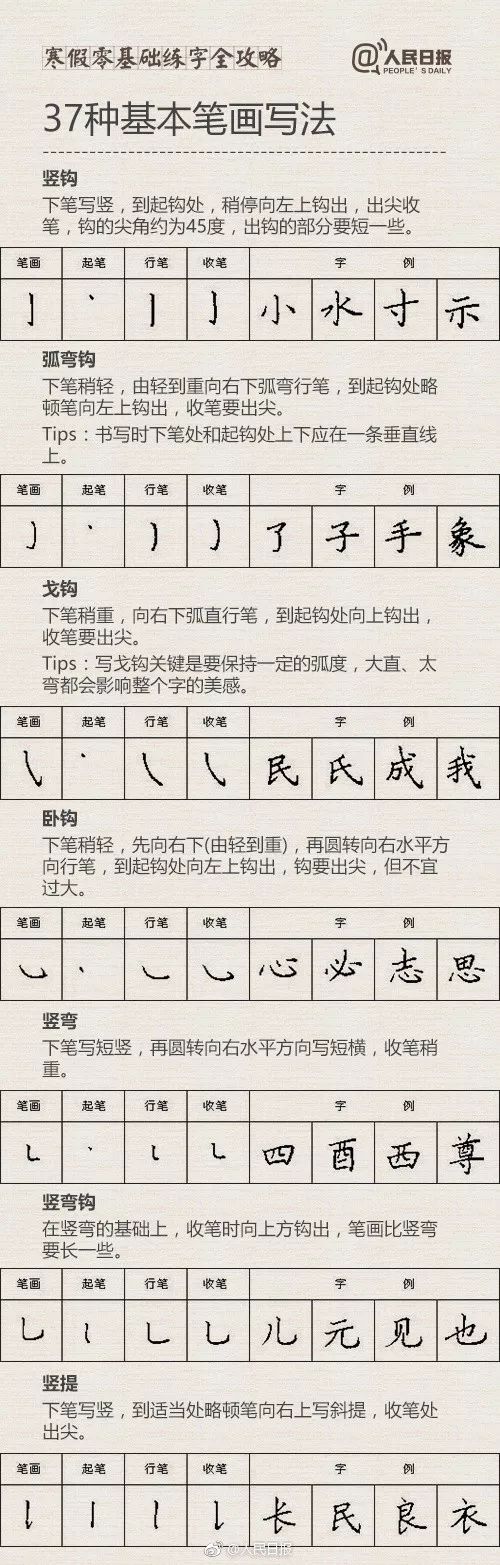 寒假零基础练字全攻略
@人民日报
PEOPLE'S DAILY
37种基本笔画写法
竖钩
下笔写竖，到起钩处，稍停向左上钩出，出尖收
笔，钩的尖角约为45度，出钩的部分要短一些。
笔画 起笔 行笔 收笔 字 例
亅 丶 丨 亅 小 水 寸 示
弧弯钩
下笔稍轻，由轻到重向右下弧弯行笔，到起钩处略
顿笔向左上钩出，收笔要出尖。
Tips：书写时下笔处和起钩处上下应在一条垂直线
上。
笔画 起笔 行笔 收笔 字 例
了 子 手 象
戈钩
下笔稍重，向右下弧直行笔，到起钩处向上钩出，
收笔要出尖。
Tips：写戈钩关键是要保持一定的弧度，大直、太
弯都会影响整个字的美感。
笔画 起笔 行笔 收笔 字 例
民 氏 成 我
卧钩
下笔稍轻，先向右下(由轻到重)，再圆转向右水平方
向行笔，到起钩处向左上钩出，钩要出尖，但不宜
过大。
笔画 起笔 行笔 收笔 字 例
心 必 志 思
竖弯
下笔写短竖，再圆转向右水平方向写短横，收笔稍
重。
笔画 起笔 行笔 收笔 字 例
四 酉 西 尊
竖弯钩
在竖弯的基础上，收笔时向上方钩出，笔画比竖弯
要长一些。
笔画 起笔 行笔 收笔 字 例
儿 元 见 也
竖提
下笔写竖，到适当处略顿笔向右上写斜提，收笔处
出尖。
笔画 起笔 行笔 收笔 字 例
长 民 良 衣
@人民日报